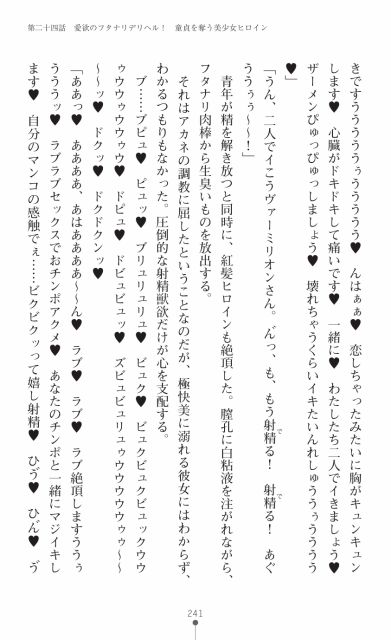 第二十四話　愛欲のフタナリデリヘル！　童貞を奪う美少女ヒロイン
きですうううううぅぅううううう♥　んはぁぁ♥　恋しちゃったみたいに胸がキュンキュン
します♥　心臓がドキドキして痛いです♥　一緒に♥　わたしたち二人でイきましょう♥
ザーメンぴゅっぴゅっしましょう♥　壊れちゃうくらいイキたいんれしゅううぅうううう
♥」
「うん、二人でイこうヴァーミリオンさん。んっ、も、もう射精る！　射精る！　あぐ
ううぅぅ～～！」
　青年が精を解き放つと同時に、紅髪ヒロインも絶頂した。膣孔に白粘液を注がれながら、
フタナリ肉棒から生臭いものを放出する。
　それはアカネの調教に屈したということなのだが、極快美に溺れる彼女にはわからず、
わかるつもりもなかった。圧倒的な射精獣欲だけが心を支配する。
　ブ……ブビュ♥　ピュッ♥　ブリュリュリュ♥　ビュク♥　ビュクビュクビュックウウ
ゥウウゥウウゥウ♥　ドビュ♥　ドビュビュッ♥　ズビュビュリュゥウウウウウゥゥ～
～～ッ♥　ドクッ♥　ドクドクンッ♥
「ああっ♥　ああああ、あはああああ～～ん♥　ラブ♥　ラブ♥　ラブ絶頂しますうぅぅ
うううッ♥　ラブラブセックスでおチンポアクメ♥　あなたのチンポと一緒にマジイキし
ます♥　自分のマンコの感触でぇ……ビクビクッって嬉し射精♥　ひづ♥　ひん♥　づ
241